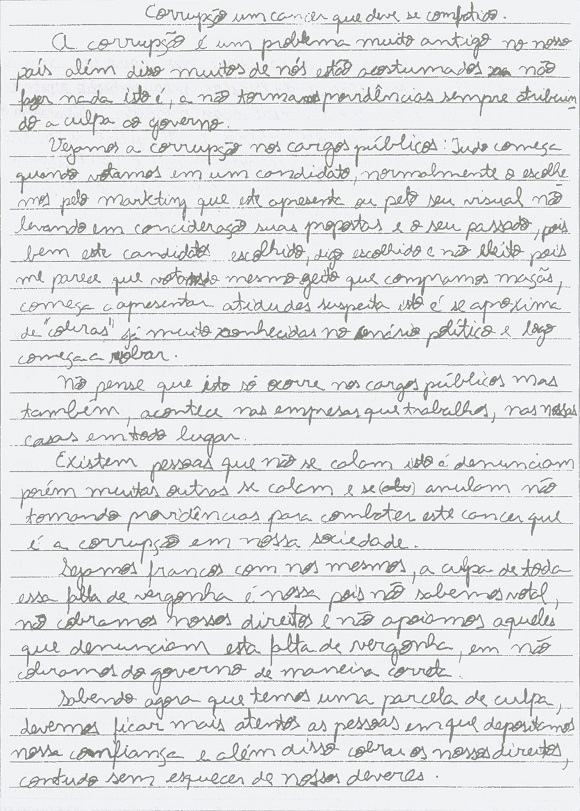 Corrupção um cancer que deve se combatido.
A corrupção é um problema muito antigo no nosso
país além diso muitos de nós estão acostumados não
fazer nada isto é, a não tormamos providências sempre atribuin
do a culpa ao governo.
Vejamos a corrupção nos cargos públicos: Tudo começa
quando votamos em um candidato, normalmente o escolhe
mos pelo markting que este apresenta ou pelo seu visual não
levando em concideração suas propostas e o seu passado, pois
bem este candidato escolhido, digo escolhido e não eleito pois
me parece que votamos do mesmo geito que compramos maçãs,
começa a apresentar atidudes suspeita isto é se aproxima
de "cobras" já muito conhecidas no cenário político e logo
começa a robar.
Não pense que isto só ocorre nos cargos públicos mas
também, acontece nas empresas que trabalhos, nas nossas
casas em todo lugar.
Existem pessoas que não se calam isto é denunciam
porém muitas outras se calam e se anulam não
tomando providências para combater este cancer que
é a corrupção em nossa sociedade.
Sejamos francos com nos mesmos, a culpa de toda
essa falta de vergonha é nossa pois não sabemos votal,
não cobramos nossos direitos e não apoiamos aqueles
que denunciam esta falta de vergonha, em não
cobramos do governo de maneira correta.
Sabendo agora que temos uma parcela de culpa,
devemos ficar mais atentos as pessoas em que depositamos
nossa confiança e além disso cobrar os nossos direitos,
contudo sem esquecer de nossos deveres.